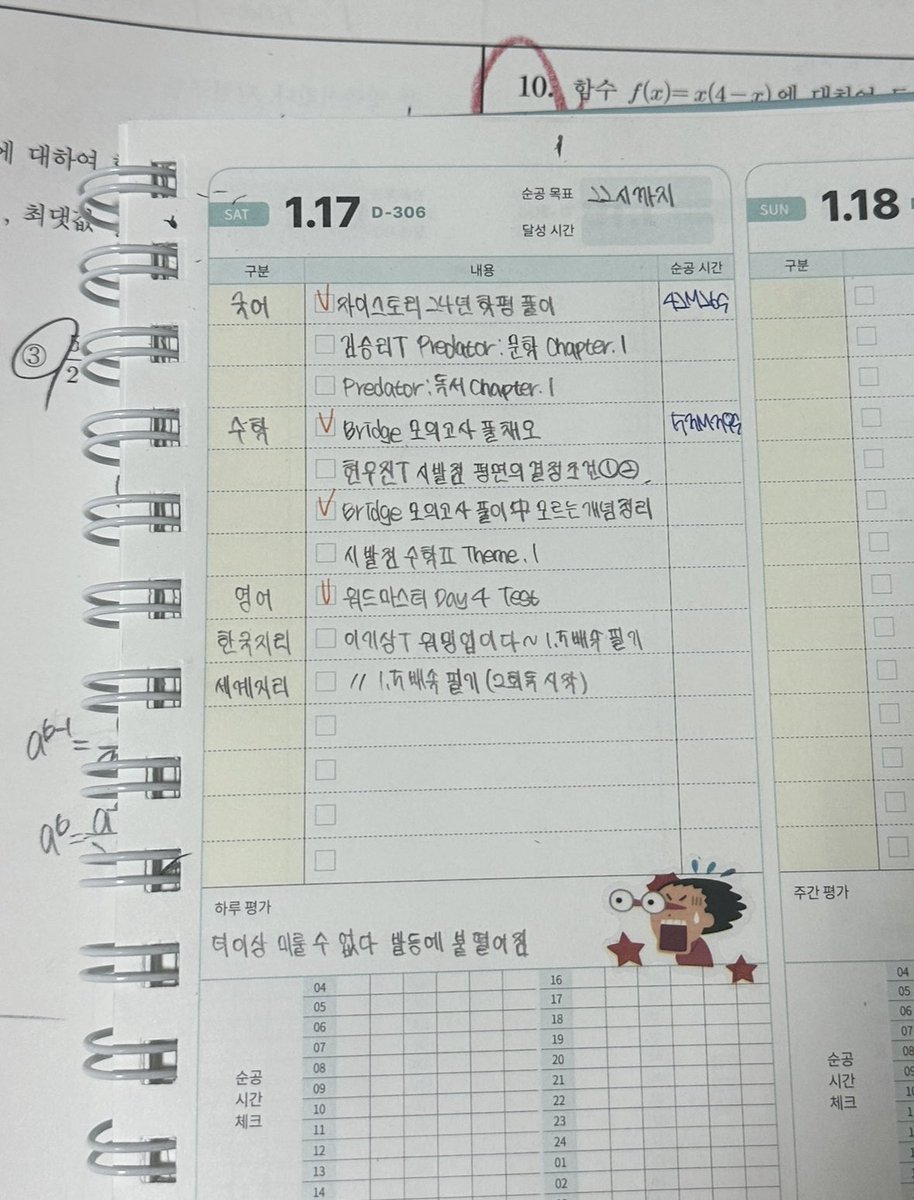 10. 함수 f(x)=x(4-x)에 대하여
에 대하여
, 최댓값
③
2
a^{b-1}=
a^b=
SAT 1.17 D-306
순공 목표 22시까지
달성 시간
구분 내용 순공 시간
국어 자이스토리 24년 학평 풀이
김승리T Predator: 문학 Chapter.1
Predator: 독서 Chapter.1
수학 Bridge 모의고사 풀채오
현우진T 시발점 평면의 결정조건①②
Bridge 모의고사 풀이 中 모르는 개념정리
시발점 수학Ⅱ Theme.1
영어 워드마스터 Day 4 Test
한국지리 이기상T 워밍업이다~ 1.5배속 필기
세계지리 // 1.5배속 필기 (2회독 시작)
하루 평가
더이상 미룰 수 없다 발등에 불 떨어짐
순공
시간
체크
04 16
05 17
06 18
07 19
08 20
09 21
10 22
11 23
12 24
13 01
14 02
SUN 1.18
구분
주간 평가
순공
시간
체크
04
05
06
07
08
09